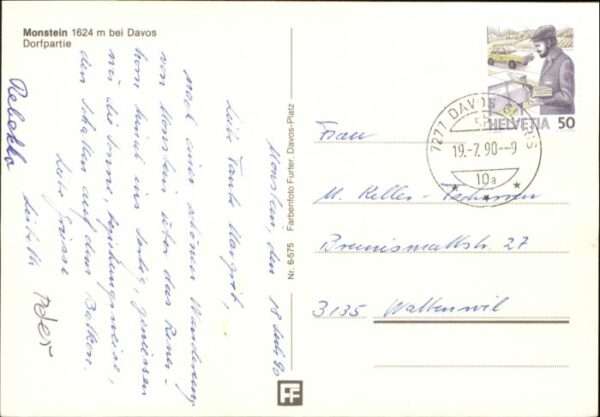 Monstein 1624 m bei Davos
Dorfpartie
Monstein, den 18. Juli 90
Liebe Tante Margrit,
nach einer schönen Wanderung
von Monstein über das Rener-
horn hinab ins Sertig, geniessen
wir die Sonne, beziehungsweise,
den Schatten auf dem Balkon.
Liebe Grüsse
Rebekka
Peter
Nr. 6-575 Farbenfoto Furter, Davos-Platz
HELVETIA 50
7277 DAVOS
19.-7.90--9
10a
Frau
M. Keller-
Brunismattstr. 27
3135 Wattenwil
FF